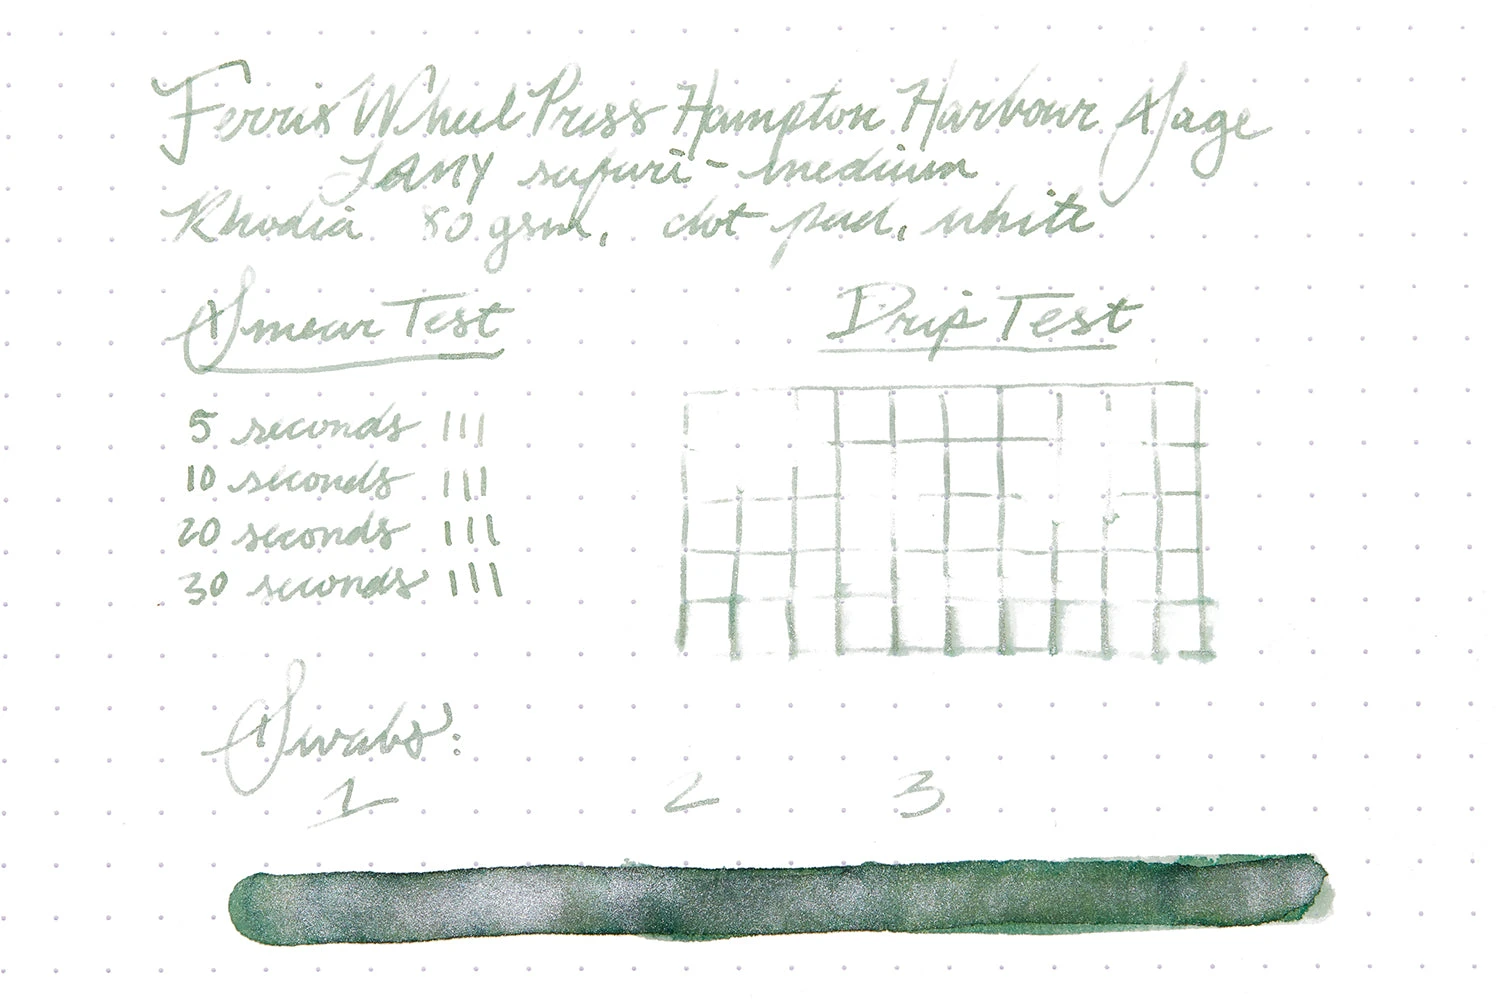 Ferris Wheel Press Hampton Harbour Sage
LAMY safari - medium
Rhodia 80 gsm, dot pad, white
Smear Test
5 seconds
10 seconds
20 seconds
30 seconds
Drip Test
Swabs:
1 2 3